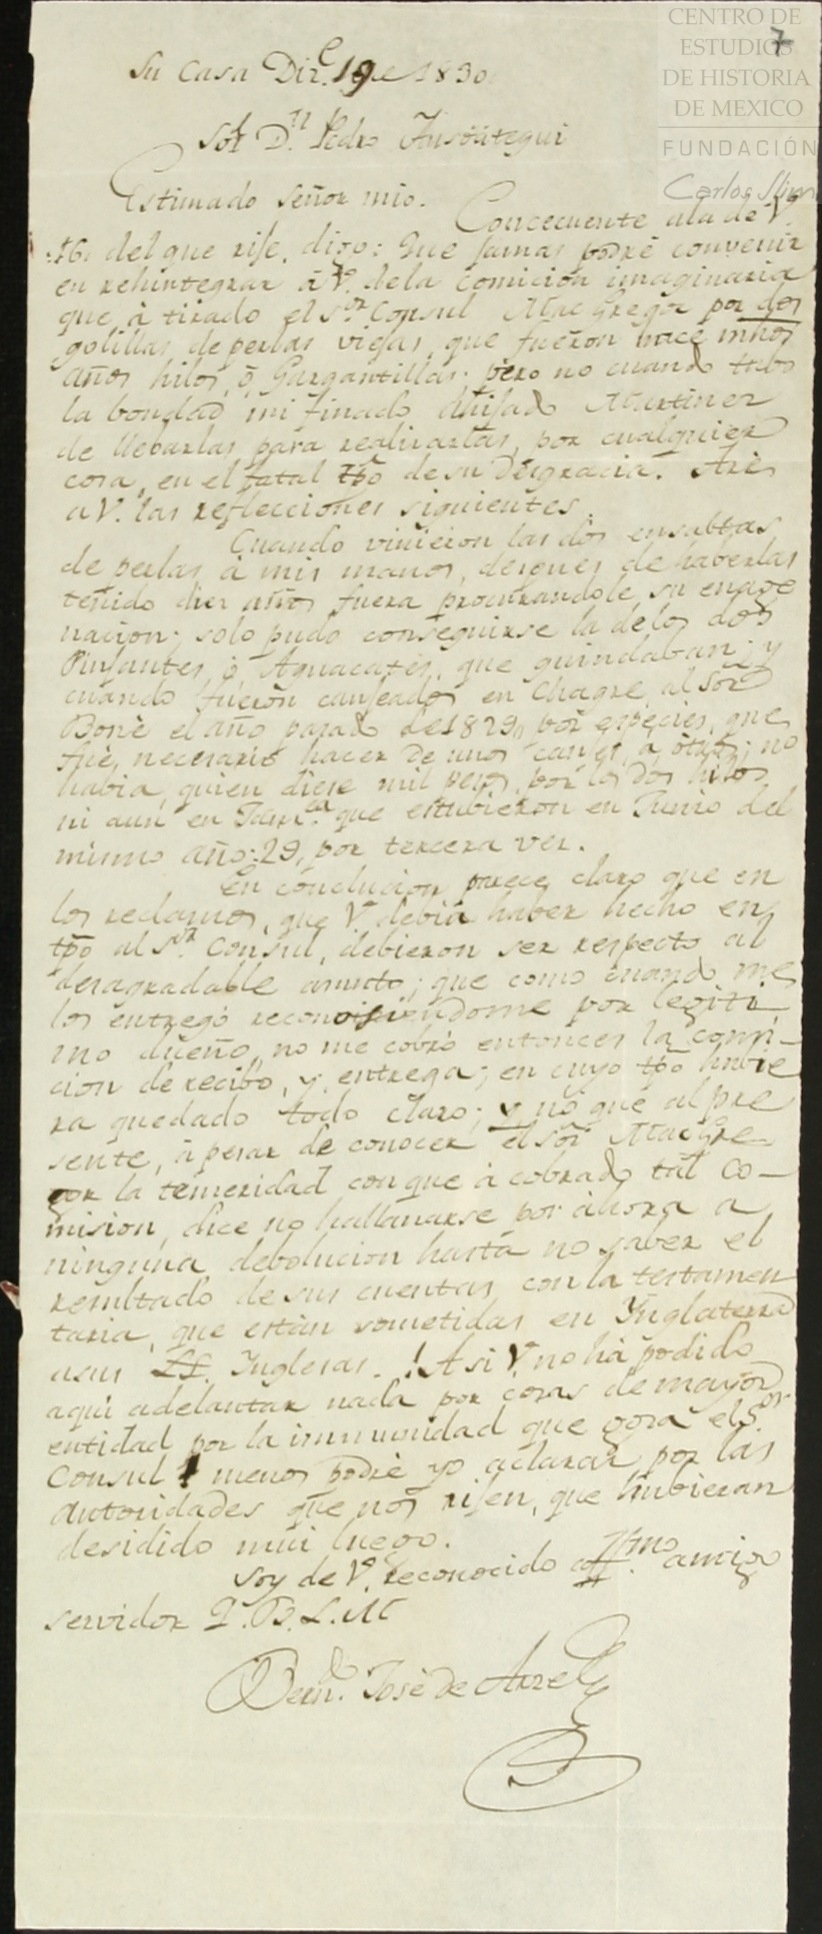 CENTRO DE
ESTUDIOS
DE HISTORIA
DE MEXICO
FUNDACIÓN
Carlos Slim
7
Su Casa Diz.e 19 de 1830
Sor Dn Pedro
Estimado Señor mio.
Concecuente ala de V.
16. del que rije, digo: Que jamas podré convenir
en rehintegrar á V. dela comicion imaginaria
que á tirado el Sor Consul MacGregor por dos
golillas de perlas viejas, que fueron hace muchos
años hilos, ó Gargantillas; pero no cuando tubo
la bondad mi finado Ahijado Martinez
de llebarlas para realizarlas, por cualquier
cosa, en el fatal tpo de su Desgracia. Aré
a V. las reflecciones siguientes.
Cuando vinieron las dos ensaltas
de perlas á mis manos, despues de haberlas
tenido diez años fuera procurandole su enage
nacion; solo pudo conseguirse la de los dos
Pinjantes, ó Aguacates, que guindaban; y
cuando fueron canjeados en Chagre al Sor
Boné el año pasado de 1829, por especies, que
fué necesario hacer de unos canjes, a otros; no
habia quien diese mil pesos por los dos hilos
ni aun en Jam.ca que estubieron en Junio del
mismo año: 29, por tercera vez.
En conclucion parece claro que en
los reclamos, que V. debia haber hecho en
tpo al Sor Consul, debieron ser respecto al
desagradable asunto; que como cuando me
los entregó reconosiendome por legiti
mo dueño, no me cobró entonces la comi-
cion de recibo, y entrega; en cuyo tpo hubie
ra quedado todo claro; y no que al pre
sente, á pesar de conocer el Sor MacGre-
gor la temeridad con que á cobrado tal Co-
mision, dice no hallanarse por ahora a
ninguna debolucion hasta no saber el
resultado de sus cuentas con la testamen
taria, que están sometidas en Ynglaterra
a sus LL. Inglesas. ! Asi V. no há podido
aqui adelantar nada por cosas de mayor
entidad por la inmunidad que goza el Sor
Consul menos podré yo aclarar por las
Autoridades que nos rijen, que hubieran
desidido mui luego.
Soy de V. reconocido amigo
servidor Q. B. L. M.
Bern.do José de Arze